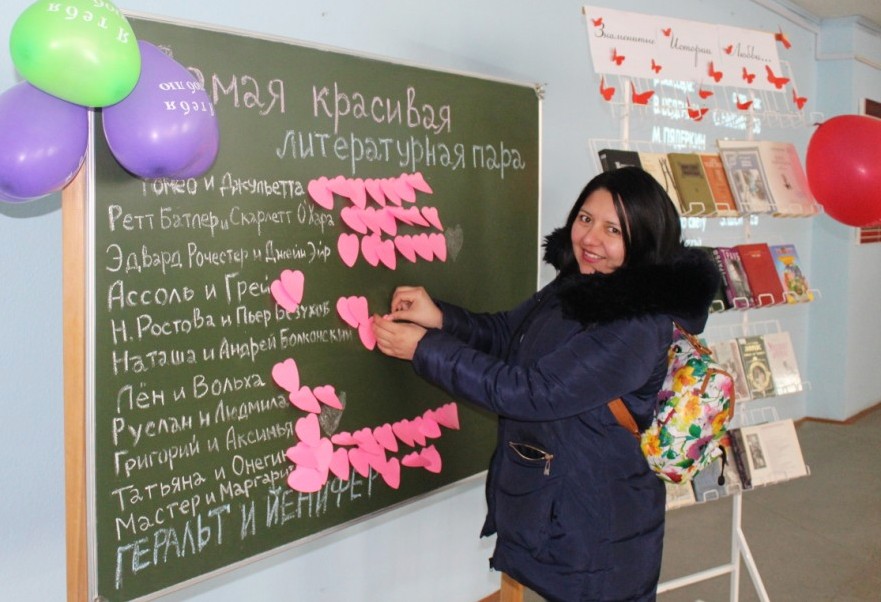 я тебя люблю
я тебя
самая красивая
литературная пара
Ромео и Джульетта
Ретт Батлер и Скарлетт О'Хара
Эдвард Рочестер и Джейн Эйр
Ассоль и Грей
Н. Ростова и Пьер Безухов
Наташа и Андрей Болконский
Лён и Вольха
Руслан и Людмила
Григорий и Аксинья
Татьяна и Онегин
Мастер и Маргарит
ГЕРАЛЬТ И ЙЕНИФЕР
Знаменитые Истории Любви...